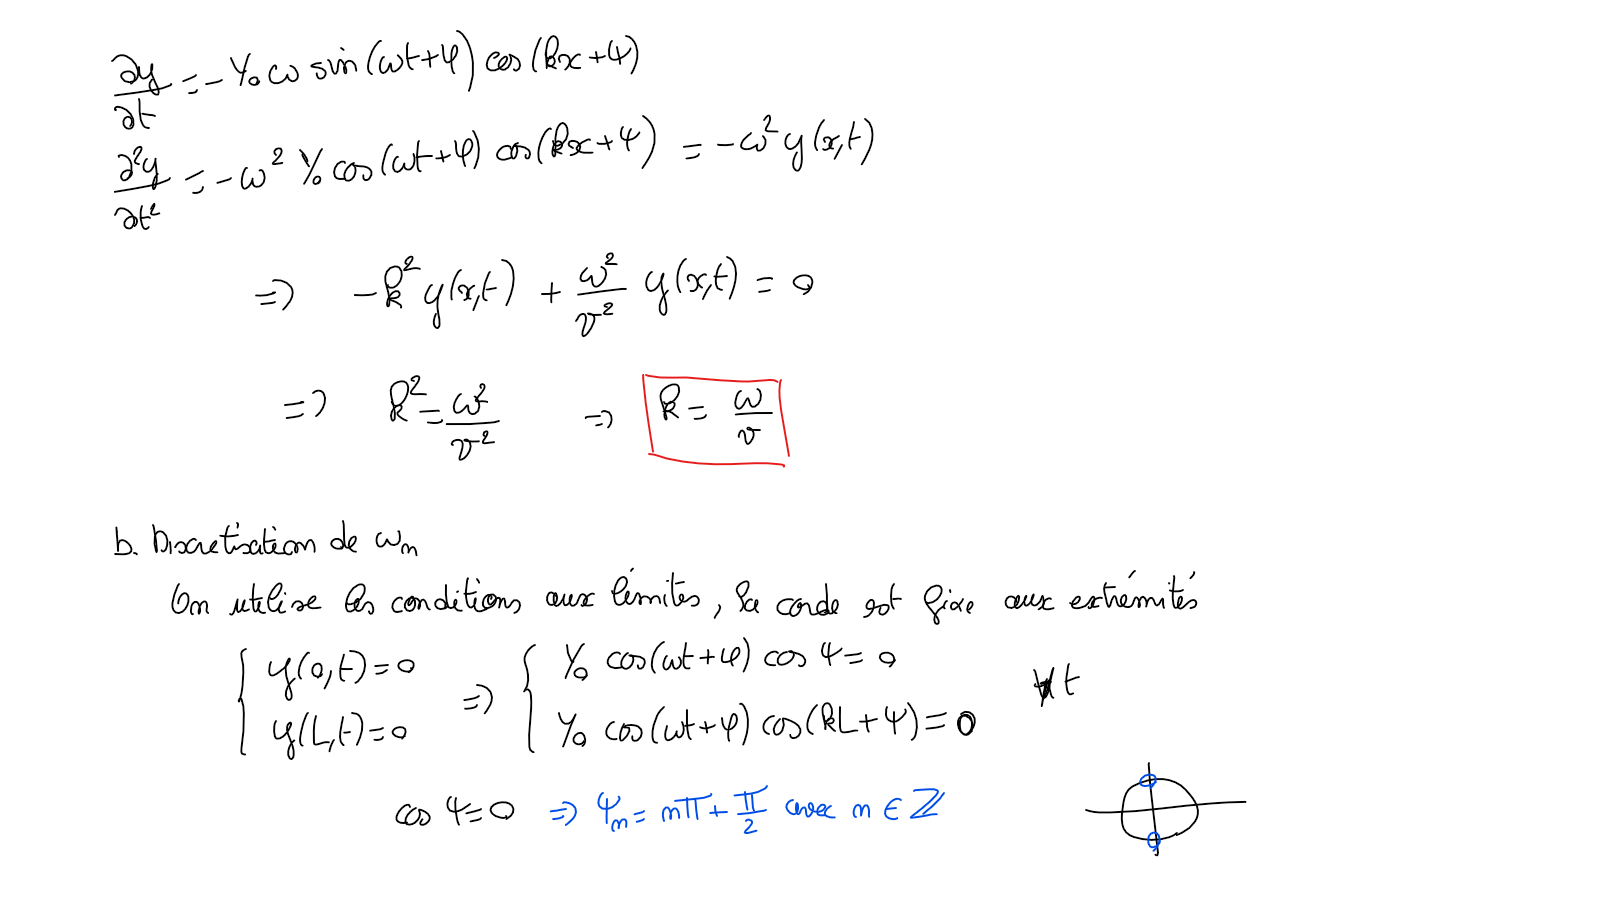 ∂y/∂t = - Y₀ ω sin(ωt+φ) cos(kx+ψ)
∂²y/∂t² = - ω² Y₀ cos(ωt+φ) cos(kx+ψ) = - ω² y(x,t)
=> - k² y(x,t) + ω²/v² y(x,t) = 0
=> k² = ω²/v² => k = ω/v
b. Discretisation de ωn
On utilise les conditions aux limites, la corde est fixe aux extrémités
{ y(0,t)=0 => { Y₀ cos(ωt+φ) cos ψ = 0 ∀t
y(L,t)=0 Y₀ cos(ωt+φ) cos(kL+ψ) = 0
cos ψ=0 => ψn = nπ + π/2 avec n ∈ ℤ